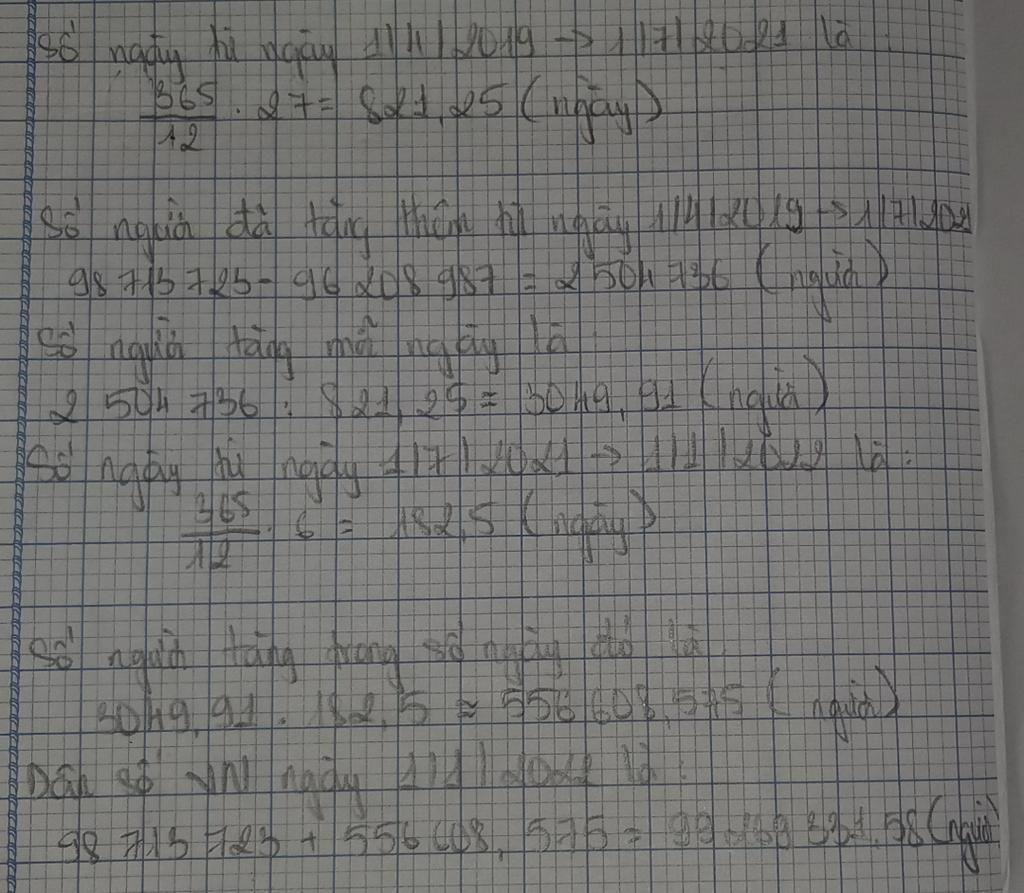 Số ngày từ ngày 1/4/2019 → 1/7/2021 là:
365/12 . 27 = 821,25 (ngày)
Số người đã tăng thêm từ ngày 1/4/2019 → 1/7/2021
98 713 723 - 96 208 987 = 2 504 736 (người)
Số người tăng mỗi ngày là:
2 504 736 : 821,25 = 3049,91 (người)
Số ngày từ ngày 1/7/2021 → 1/1/2022 là:
365/12 . 6 = 182,5 (ngày)
Số người tăng trong số ngày đó là
3049,91 . 182,5 ≈ 556 608,575 (người)
Dân số VN ngày 1/1/2022 là:
98 713 723 + 556 608,575 = 331,58 (người)